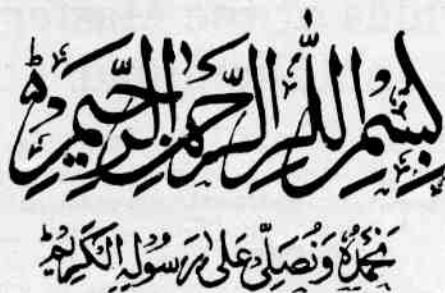 بِسْمِ اللهِ الرَّحْمٰنِ الرَّحِيْمِ
نَحْمَدُهٗ وَنُصَلِّیْ عَلٰی رَسُوْلِهِ الْكَرِیْمِ